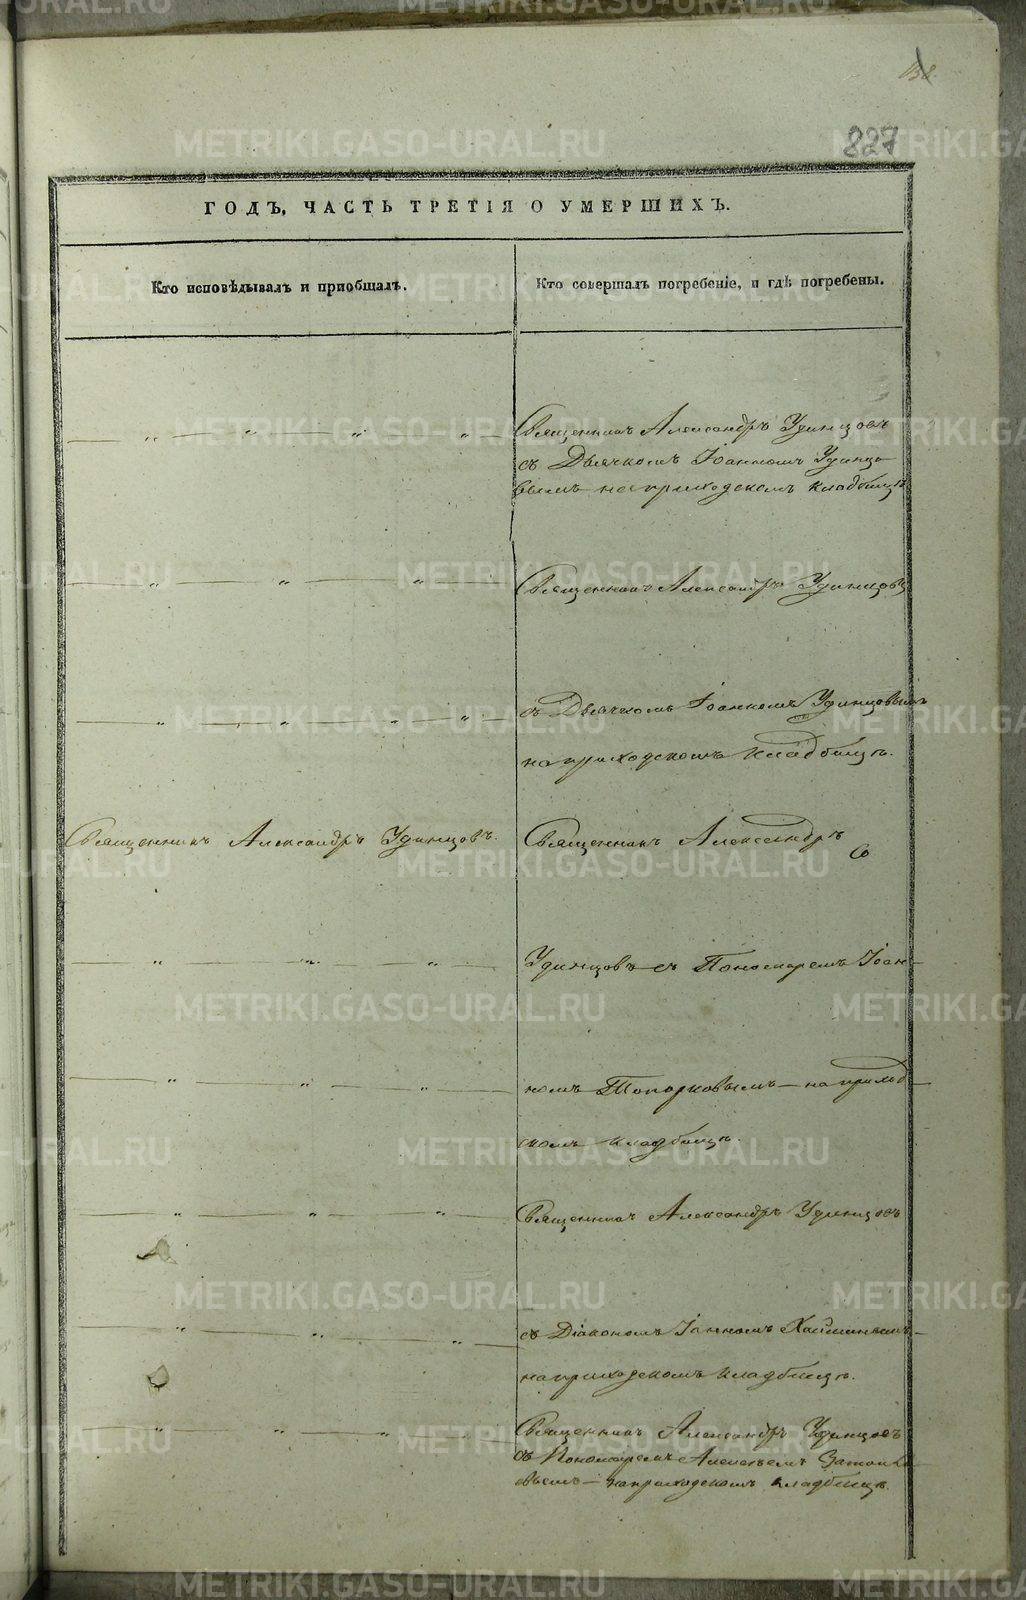 138.
827
ГОДЪ, ЧАСТЬ ТРЕТІЯ О УМЕРШИХЪ.
Кто исповѣдывалъ и приобщалъ.
Кто совершалъ погребеніе, и гдѣ погребены.
Священникъ Александръ Удинцовъ
съ Дьячкомъ Іоанномъ Удинцо-
вымъ на приходскомъ кладбищѣ
Священникъ Александръ Удинцовъ
съ Дьячкомъ Іоанномъ Удинцовымъ
на приходскомъ кладбищѣ.
Священникъ Александръ Удинцовъ.
Священникъ Александръ
Удинцовъ съ Пономаремъ Іоан-
номъ Топорковымъ на приход
скомъ кладбищѣ.
Священникъ Александръ Удинцовъ
съ Діакономъ Іоанномъ
на приходскомъ кладбищѣ.
Священникъ Александръ Удинцовъ
съ Пономаремъ Алексѣемъ
вымъ – на приходскомъ кладбищѣ.
METRIKI.GASO-URAL.RU